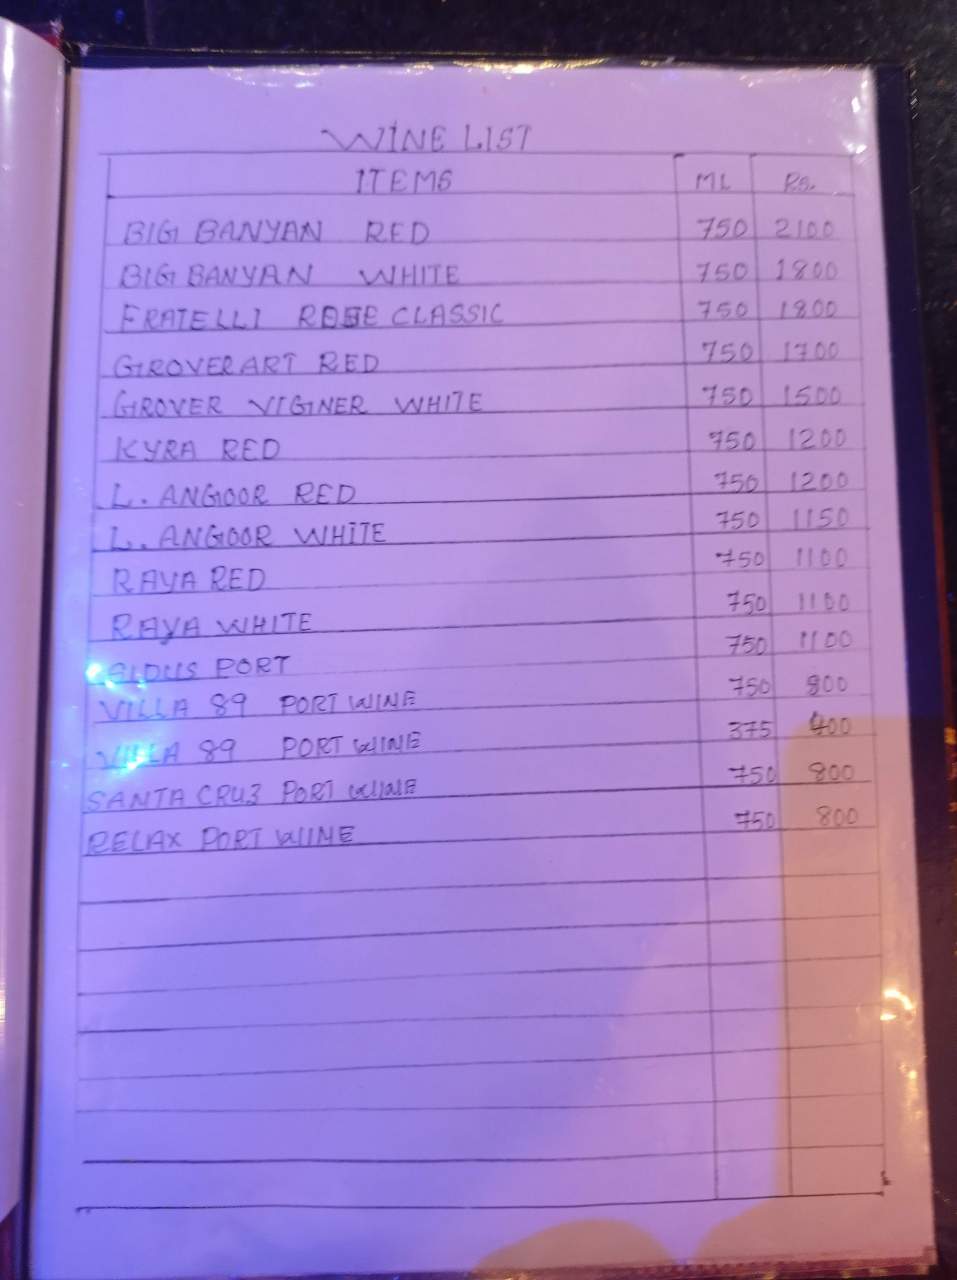 WINE LIST
ITEMS ML Rs.
BIG BANYAN RED 750 2100
BIG BANYAN WHITE 750 1800
FRATELLI ROSE CLASSIC 750 1800
GROVER ART RED 750 1700
GROVER VIGINER WHITE 750 1500
KYRA RED 750 1200
L. ANGOOR RED 750 1200
L. ANGOOR WHITE 750 1150
RAYA RED 750 1100
RAYA WHITE 750 1100
PORT 750 1100
VILLA 89 PORT WINE 750 800
VILLA 89 PORT WINE 375 400
SANTA CRUZ PORT WINE 750 800
RELAX PORT WINE 750 800